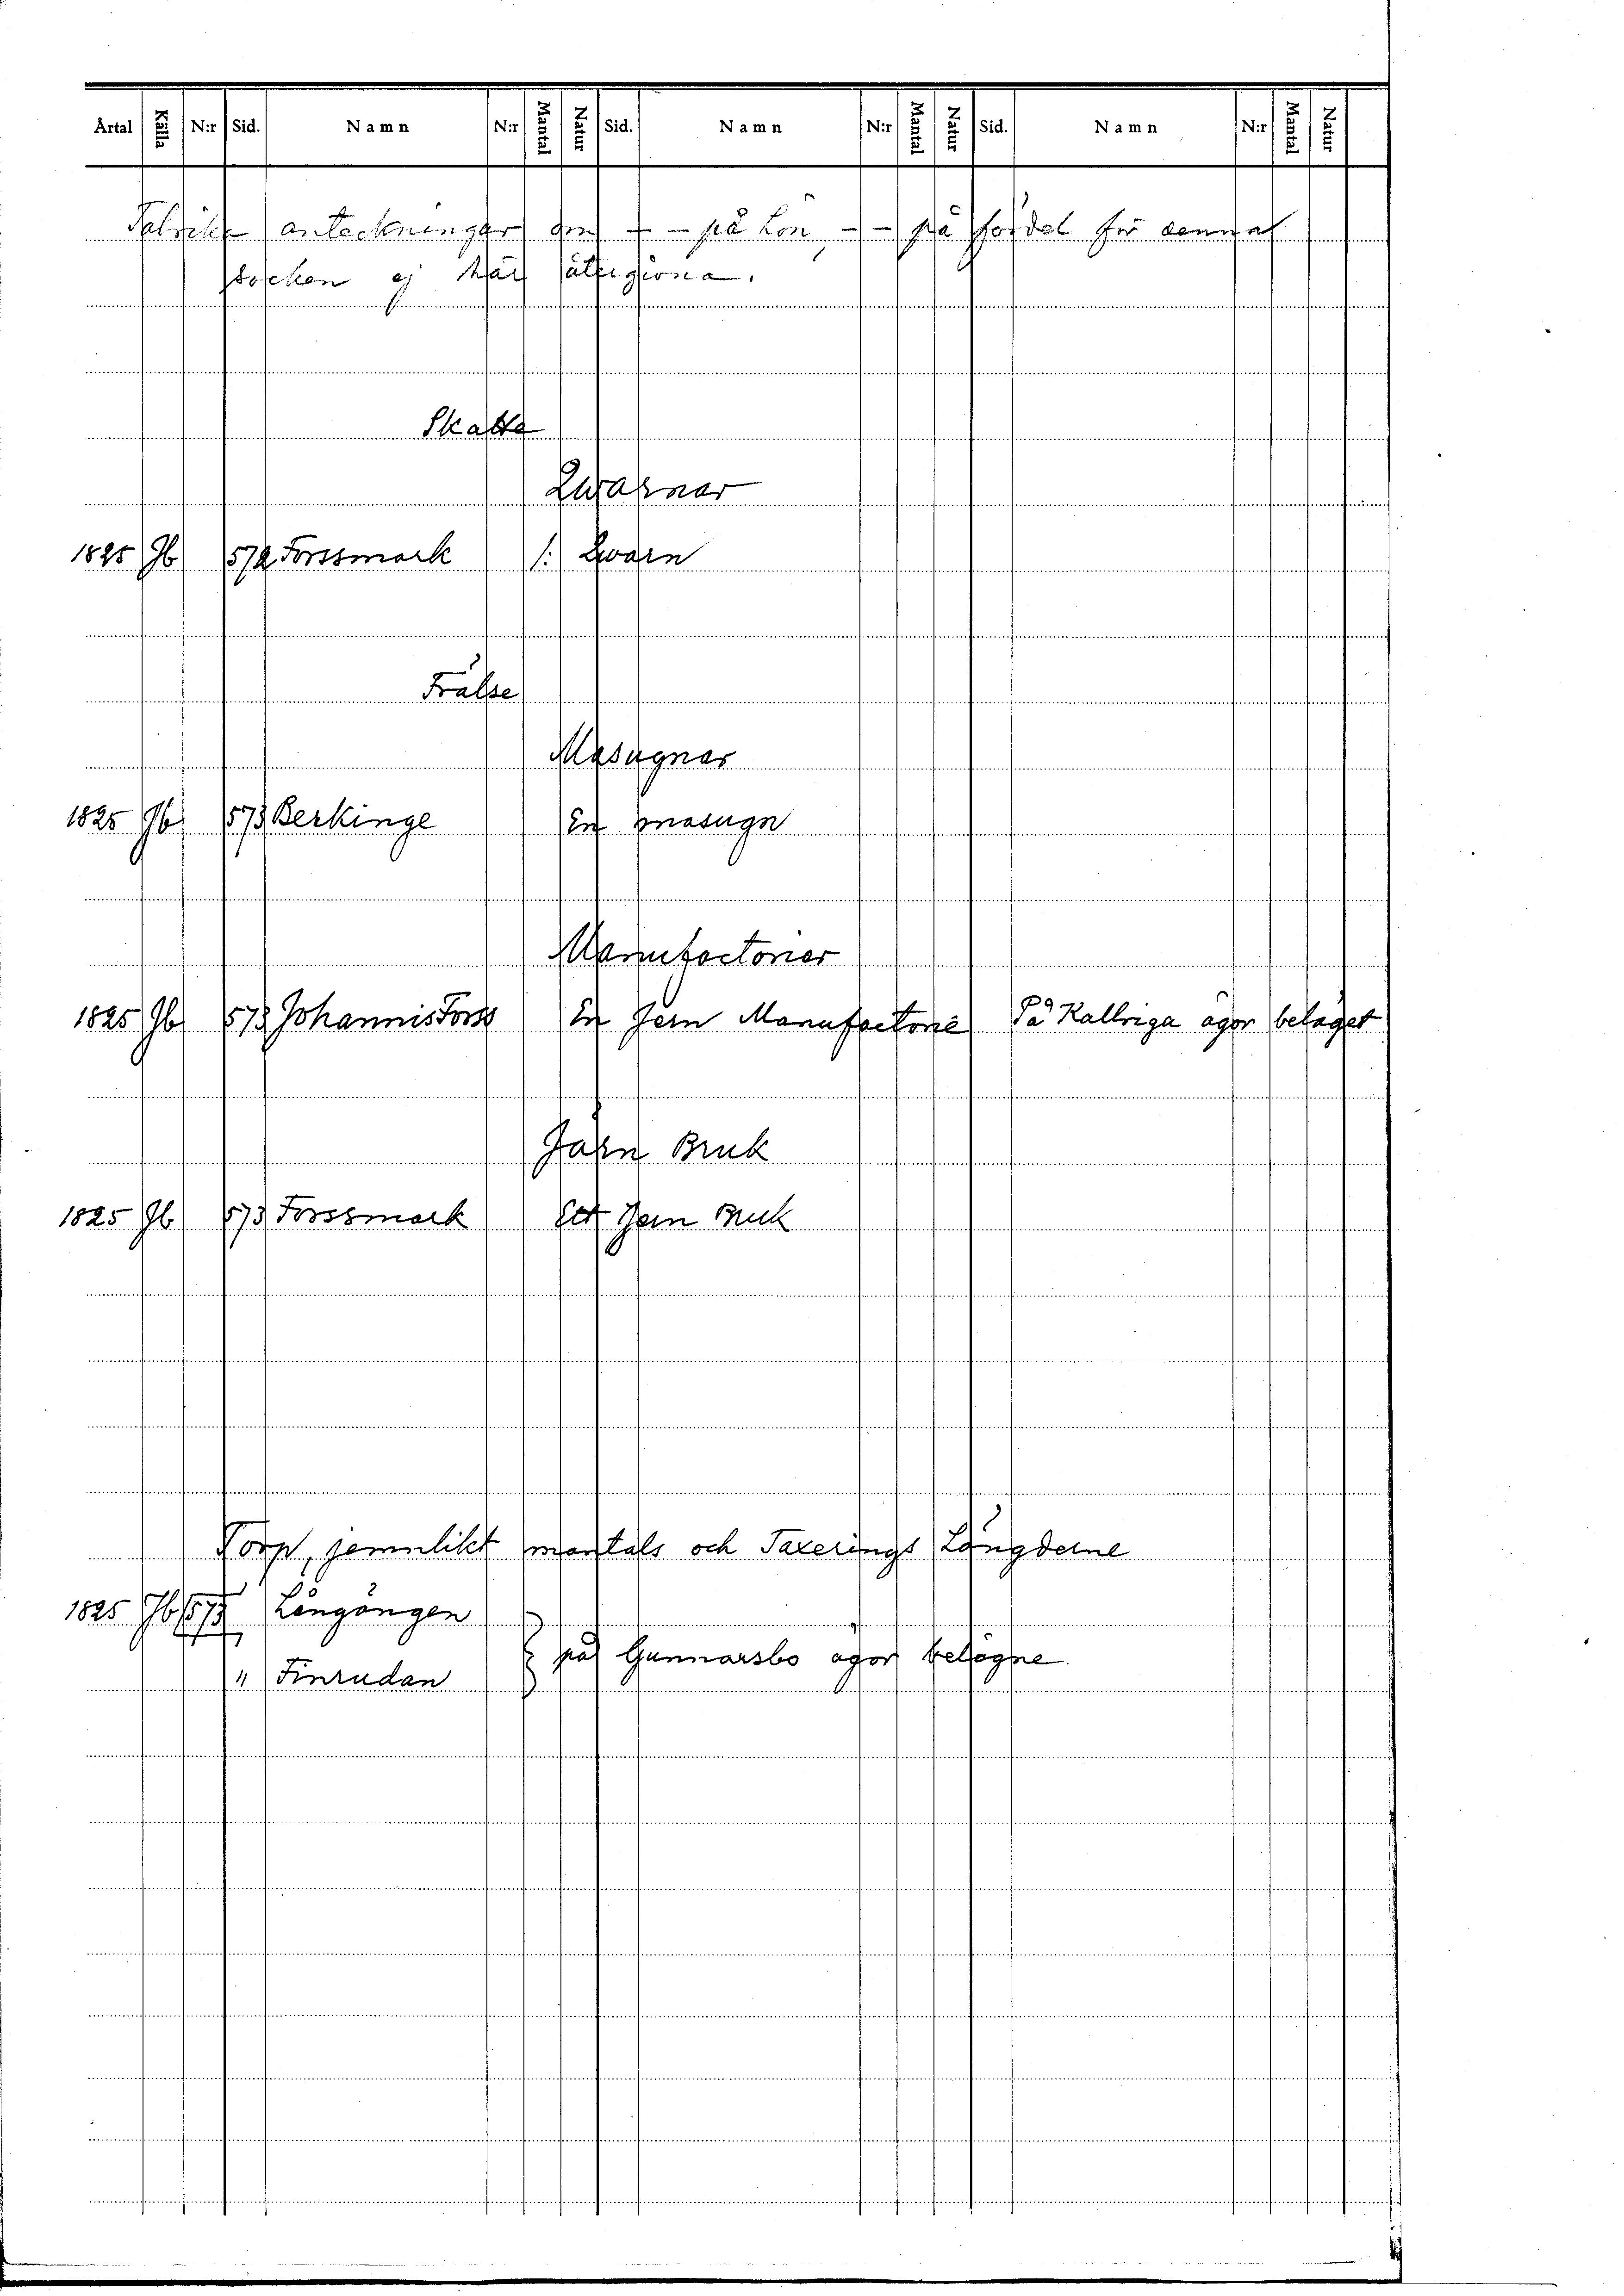 Årtal Källa N:r Sid. Namn N:r Mantal Natur Sid. Namn N:r Mantal Natur Sid. Namn N:r Mantal Natur
anteckningar om - - på Lön, - - på fördel för denna
socken ej här återgivna.
Skatte
Qwarnar
1825 Jb 572 Forssmark 1: Qvarn
Frälse
Masugnar
1825 Jb 573 Berkinge En masugn
Manufactorier
1825 Jb 573 Johannisforss En Jern Manufactorie På Kallriga ägor beläget
Järn Bruk
1825 Jb 573 Forssmark Ett Jern Bruk
Torp, jemnlikt mantals och Taxerings Längderne
1825 Jb 575 Långängen
på Gunnarsbo ägor belägne.
" Finrudan